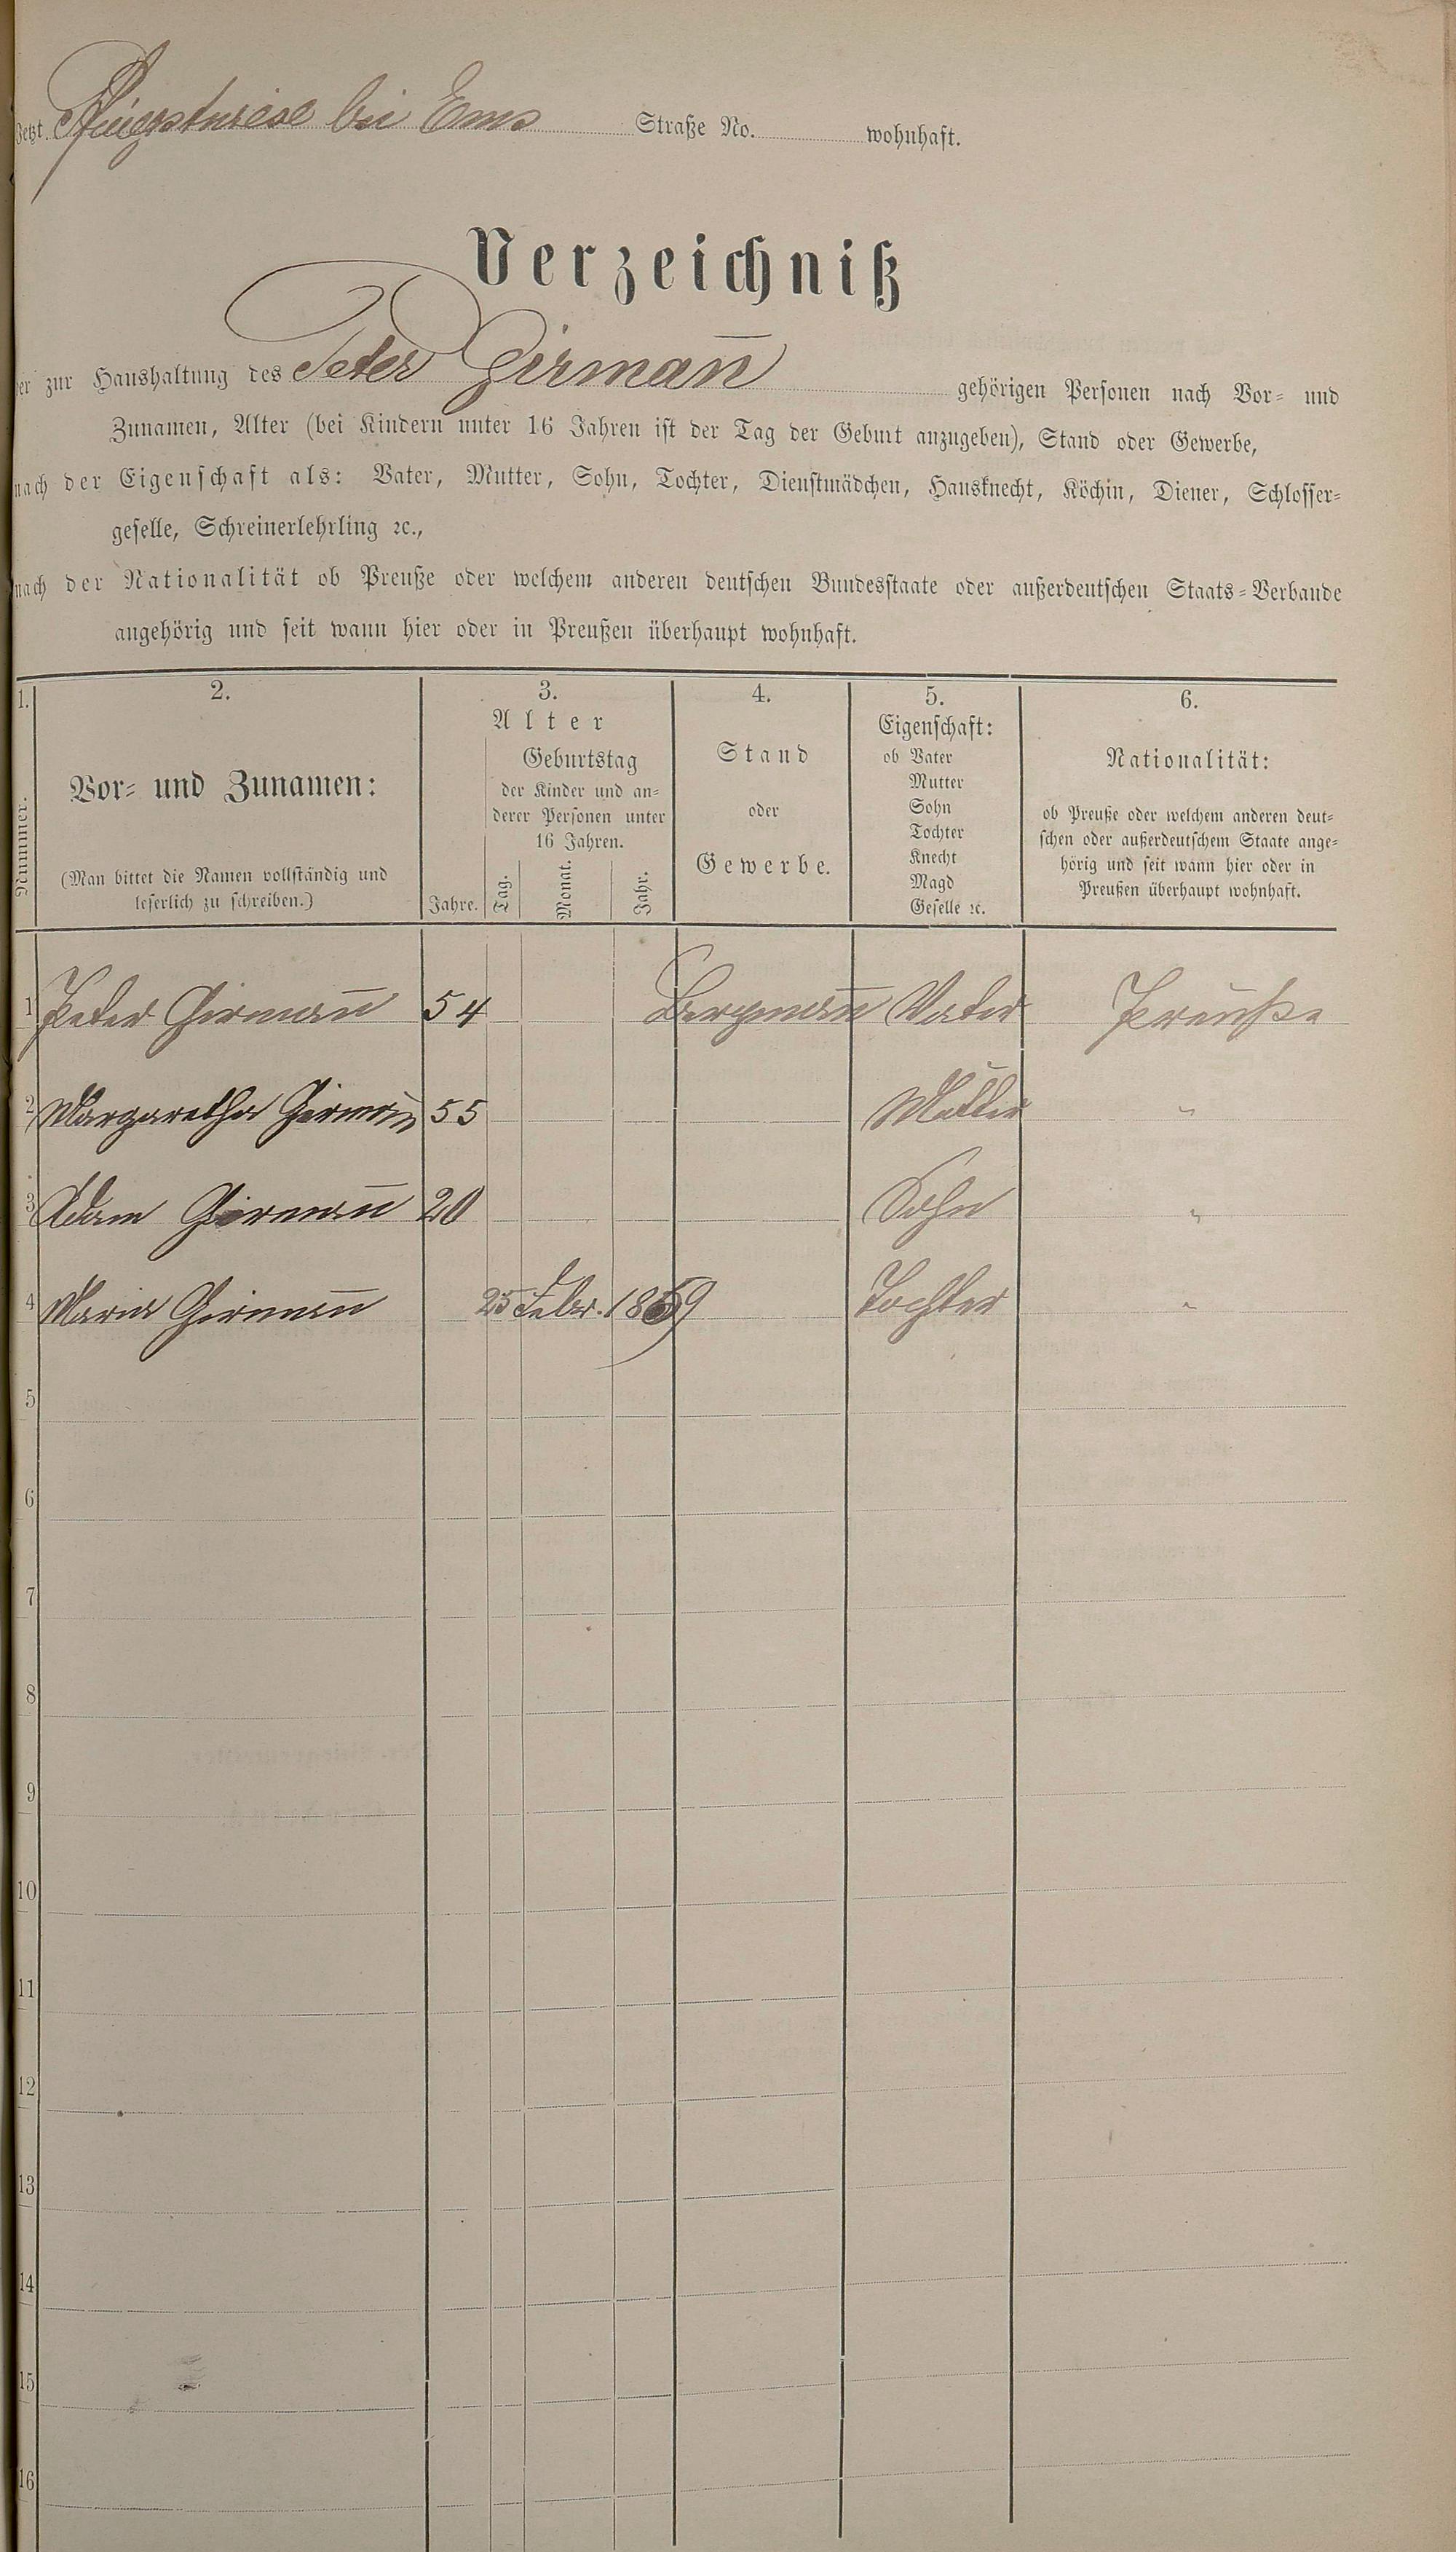 Jetzt Pfingstwiese bei Ems Straße No. wohnhaft.
Verzeichniß
der zur Haushaltung des Peter Girman̄ gehörigen Personen nach Vor- und
Zunamen, Alter (bei Kindern unter 16 Jahren ist der Tag der Geburt anzugeben), Stand oder Gewerbe,
nach der Eigenschaft als: Vater, Mutter, Sohn, Tochter, Dienstmädchen, Hausknecht, Köchin, Diener, Schlosser-
geselle, Schreinerlehrling ꝛc.,
nach der Nationalität ob Preuße oder welchem anderen deutschen Bundesstaate oder außerdeutschen Staats-Verbande
angehörig und seit wann hier oder in Preußen überhaupt wohnhaft.
1. 2. 3. 4. 5. 6.
Nummer.
Vor- und Zunamen:
(Man bittet die Namen vollständig und
leserlich zu schreiben.)
Alter
Jahre.
Geburtstag
der Kinder und an-
derer Personen unter
16 Jahren.
Tag. Monat. Jahr.
Stand
oder
Gewerbe.
Eigenschaft:
ob Vater
Mutter
Sohn
Tochter
Knecht
Magd
Geselle ꝛc.
Nationalität:
ob Preuße oder welchem anderen deut-
schen oder außerdeutschem Staate ange-
hörig und seit wann hier oder in
Preußen überhaupt wohnhaft.
1 Peter Girman̄ 54 Bergman̄ Vater Preuße
2 Margaretha Girman̄ 55 Mutter "
3 Adam Girman̄ 20 Sohn "
4 Maria Girman̄ 25 Febr. 1859 Tochter "
5
6
7
8
9
10
11
12
13
14
15
16